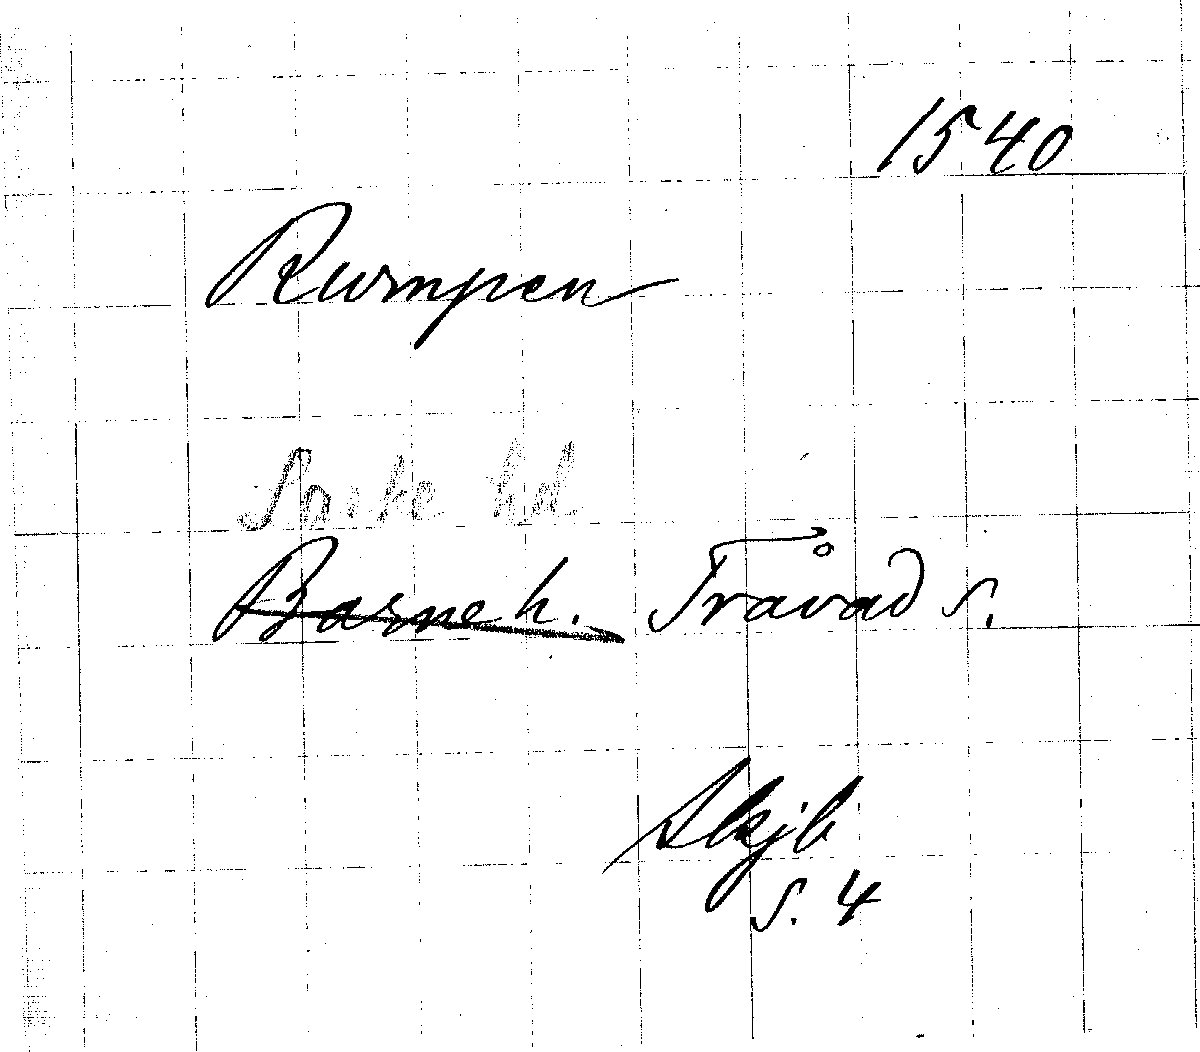 1540
Rumpen
Laske hd
Barne h. Tråvad s.
Skjb
s. 4